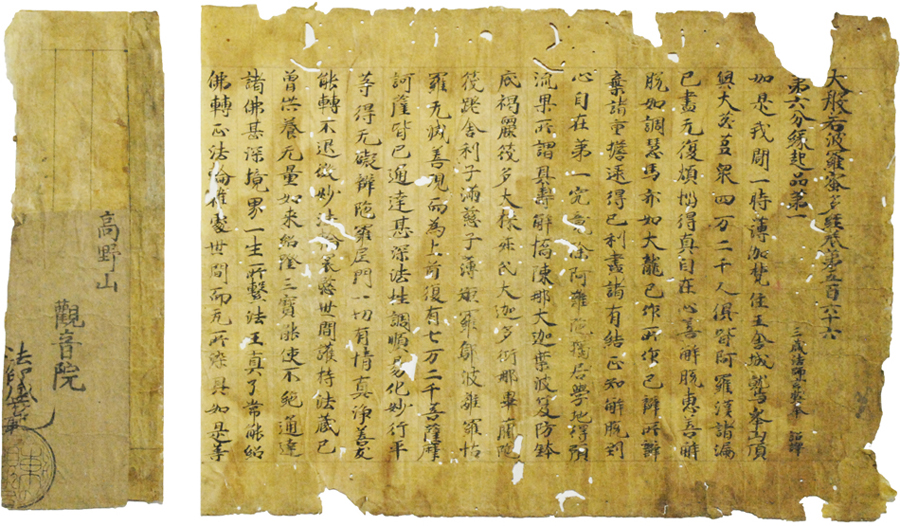 大般若波羅蜜多經卷第五百六十六
第六分緣起品第一
三藏法師玄奘奉 詔譯
如是我聞一時薄伽梵住王舍城鷲峯山頂
與大苾芻衆四万二千人俱皆阿羅漢諸漏
已盡无復煩惱得真自在心善解脫惠善解
脫如調慧馬亦如大龍已作所作已辦所辦
棄諸重擔逮得已利盡諸有結正知解脫到
心自在第一究竟除阿難陀獨居學地得預
流果所謂具壽解憍陳那大迦葉波笈防鉢
底褐麗筏多大採菽氏大迦多衍那畢蘭陀
筏蹉舍利子滿慈子薄矩羅鄔波離羅怙
羅无滅善現而為上首復有七万二千菩薩摩
訶薩皆已通達甚深法性調順易化妙行平
等得无礙辯陀羅尼門一切有情真淨善友
能轉不退微妙法輪哀愍世間護持法藏已
曾供養无量如來紹隆三寶能使不絕通達
諸佛甚深境界一生所繫法王真子常能紹
佛轉正法輪雖處世間而无所染具如是等
高野山
觀音院
法印